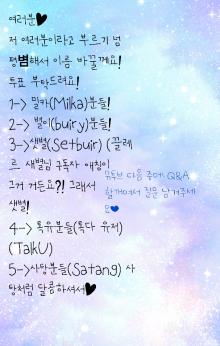 여러분♥
저 여러분이라고 부르기 넘
평범해서 이름 바꿀께요!
투표 부탁드려요!
1-> 밀카(Milka)분들!
2-> 별이(buiry)분들!
3->샛별(Setbuir) (끌레
르 새별님 구독자 애칭이
그거 거든요?! 그래서
샛별!
4-> 톡유분들(톡다 유저)
(TalkU)
5->사탕분들(Satang) 사
탕처럼 달콤하셔서♥
유튜브 다음 주에 Q&A
할꺼여서 질문 남겨주세
요💙